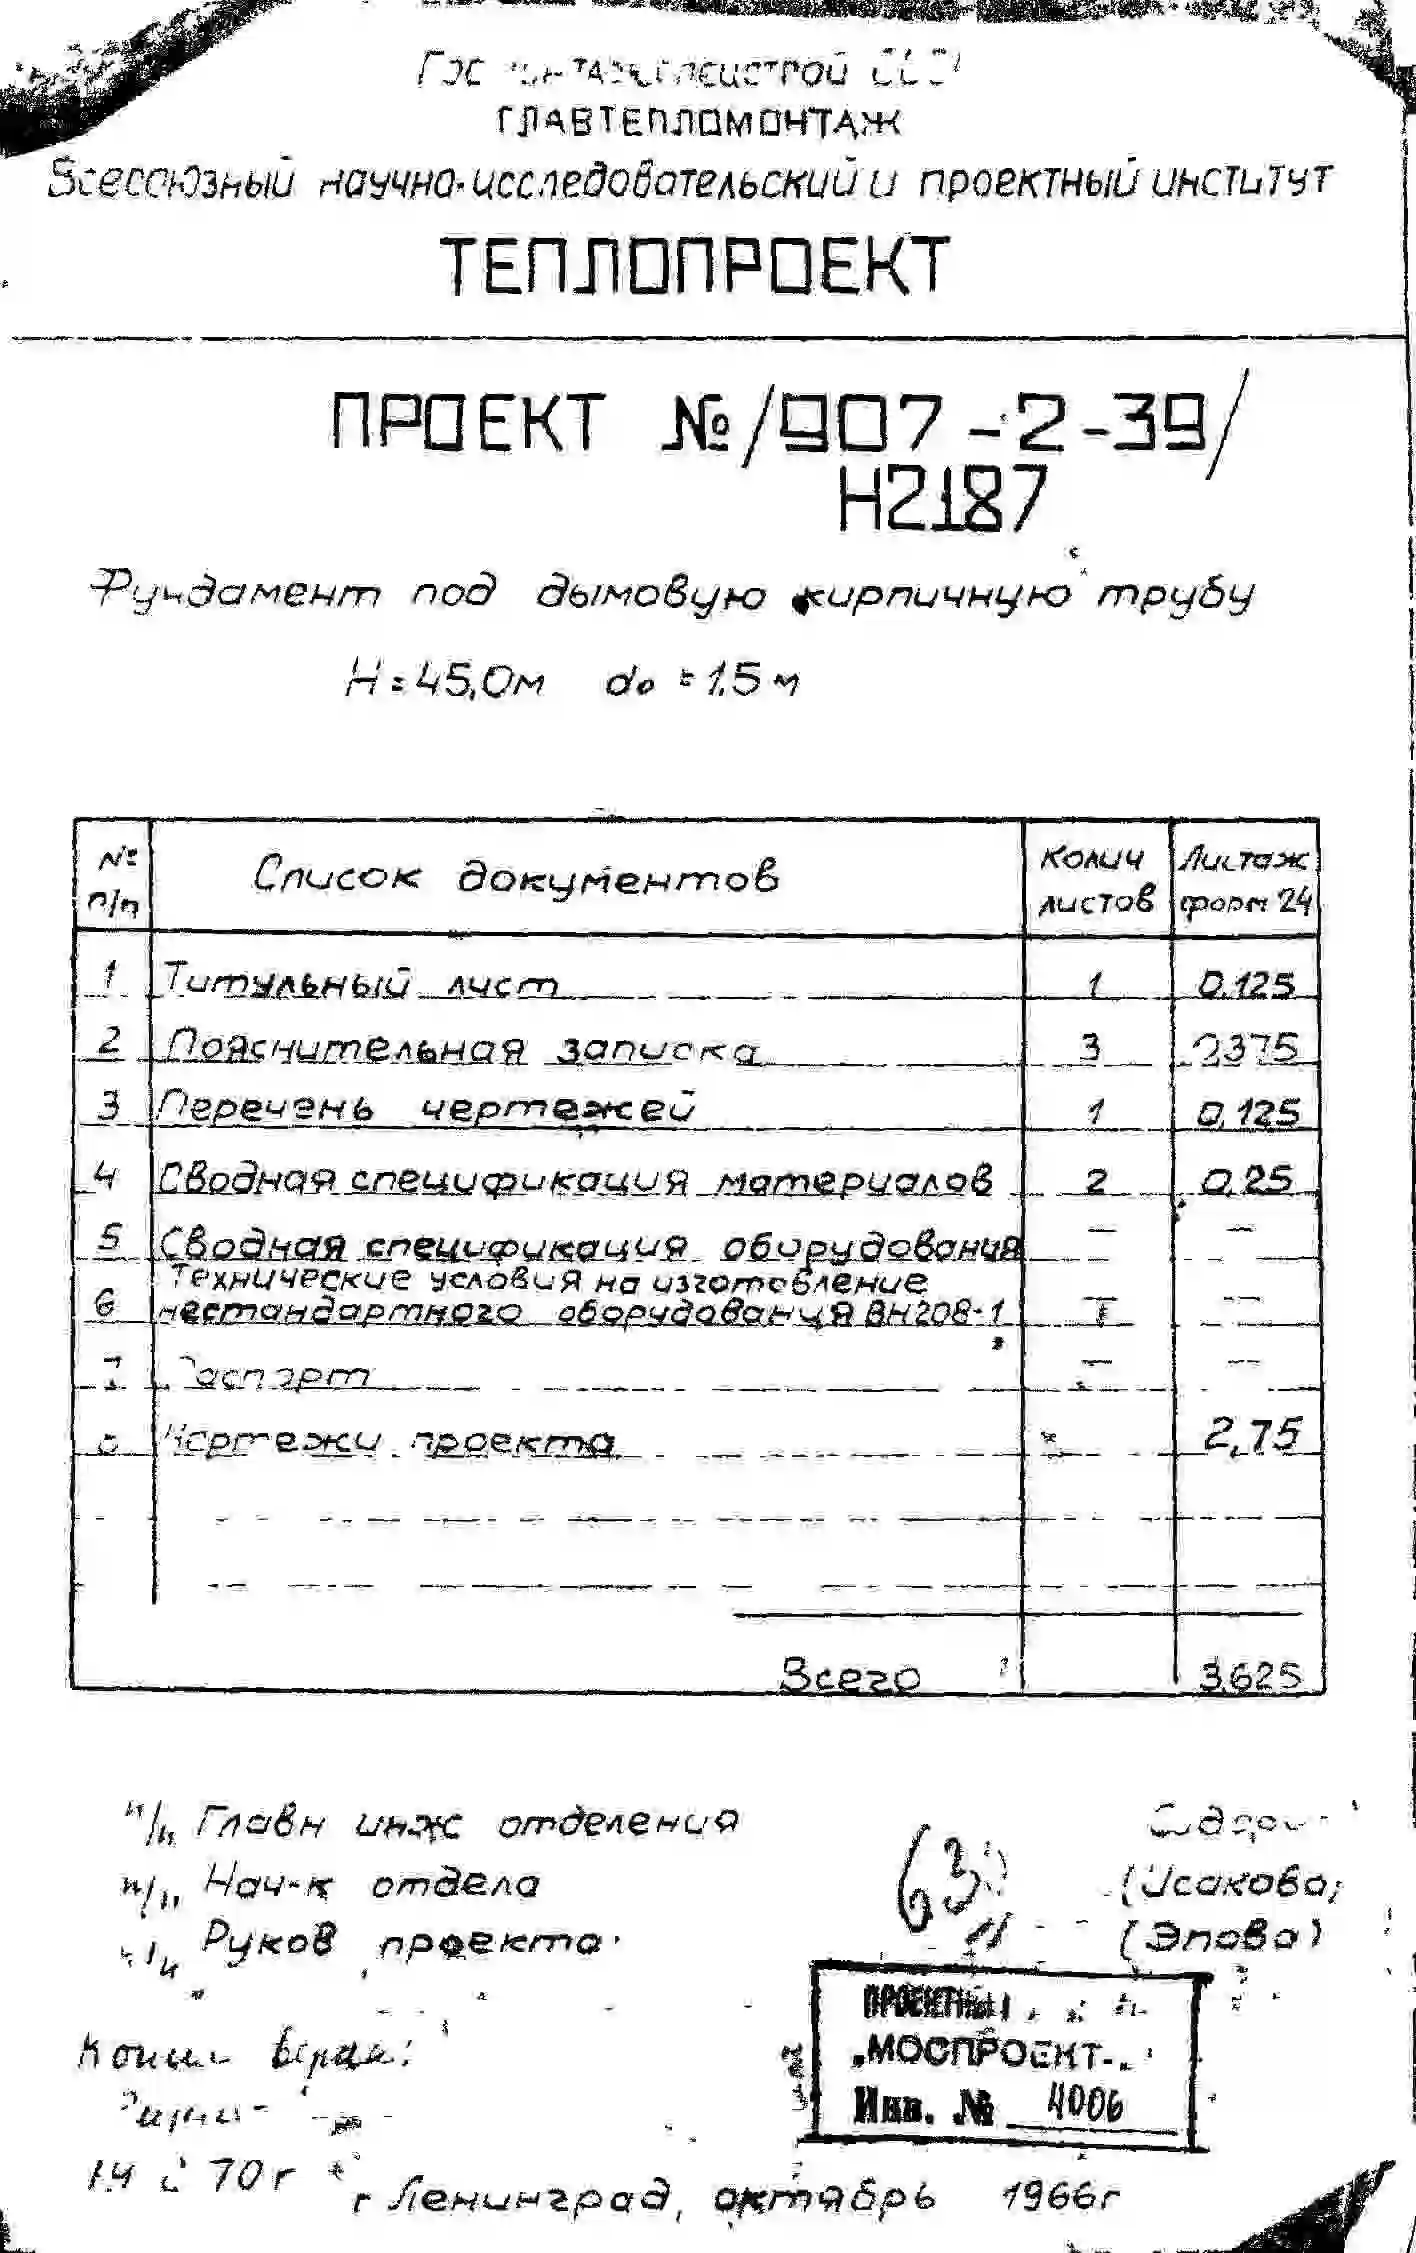 ГЛАВТЕПЛОМОНТАЖ
Всесоюзный научно-исследовательский и проектный институт
ТЕПЛОПРОЕКТ
ПРОЕКТ №/907-2-39/
Н2187
Фундамент под дымовую кирпичную трубу
Н=45,0м do=1.5м
№ п/п Список документов Колич листов Листаж форм 24
1 Титульный лист 1 0.125
2 Пояснительная записка 3 0375
3 Перечень чертежей 1 0,125
4 Сводная спецификация материалов 2 0,25
5 Сводная спецификация оборудования — —
Технические условия на изготовление
6 нестандартного оборудования ВН208-1 — —
7 Паспорт — —
Чертежи проекта 2,75
Всего 3.625
п/п Главн инж отделения
п/п Нач-к отдела (Исакова)
п/п Руков проекта (Эпова)
Копия верна:
ПРОЕКТНЫЙ
"МОСПРОЕКТ-
Инв. № 4006
70г
г Ленинград, октябрь 1966г